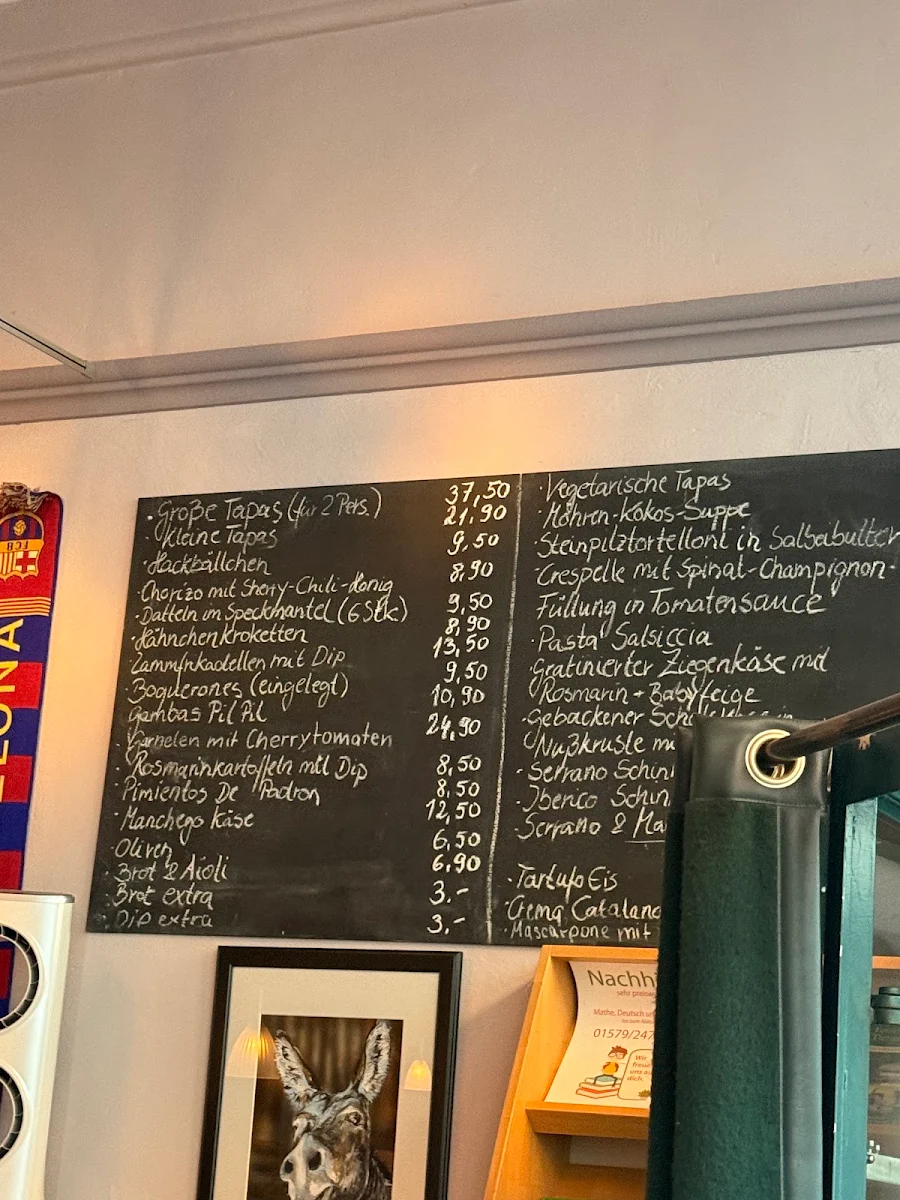 · Große Tapas (für 2 Pers.) 37,50
· Kleine Tapas 21,90
· Hackbällchen 9,50
· Chorizo mit Sherry-Chili-Honig 8,90
· Datteln im Speckmantel (6 Stk) 9,50
· Hähnchenkroketten 8,90
· Lammfrikadellen mit Dip 13,50
· Boquerones (eingelegt) 9,50
· Gambas Pil Pil 10,90
· Garnelen mit Cherrytomaten 24,90
· Rosmarinkartoffeln mit Dip 8,50
· Pimientos De Padron 8,50
· Manchego Käse 12,50
· Oliven 6,50
· Brot & Aioli 6,90
· Brot extra 3,-
· Dip extra 3,-
· Vegetarische Tapas
· Möhren-Kokos-Suppe
· Steinpilztortelloni in Salbeibutter
· Crespelle mit Spinat-Champignon-
Füllung in Tomatensauce
· Pasta Salsiccia
· Gratinierter Ziegenkäse mit
Rosmarin + Babyfeige
· Gebackener
Nußkruste
· Serrano Schin
· Iberico Schin
· Serrano & Ma
· Tartufo Eis
· Crema Catalana
· Mascarpone mit
FCB
ELONA
Nachhi
sehr preiswe
Mathe, Deutsch u
01579/247
Wir
freue
uns au
dich.